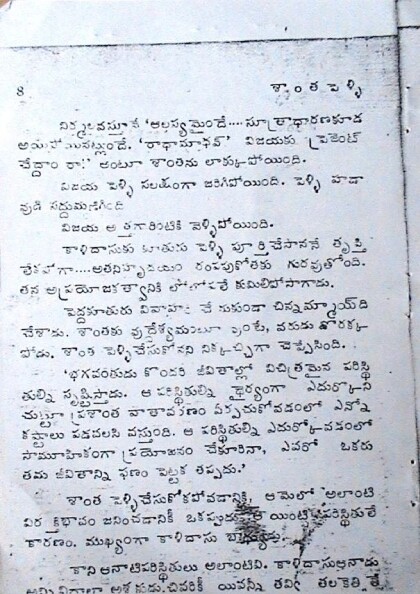 8 శాంత పెళ్ళి
నిర్మలవస్తూనే 'ఆలస్యమైందే....సూత్రాధారణకూడ
అయిపోయినట్లుందే. 'రాధామాధవ్' విజయకు ప్రెజెంట్
చేద్దాం రా!' అంటూ శాంతను లాక్కుపోయింది.
విజయ పెళ్ళి సలక్షణంగా జరిగిపోయింది. పెళ్ళి హడా
వుడి సద్దుమణిగింది
విజయ అత్తగారింటికి వెళ్ళిపోయింది.
కాళిదాసుకు కూతురు పెళ్ళి పూర్తిచేసాననే తృప్తి
లేకపోగా....అతనిహృదయం రంపపుకోతకు గురవుతోంది.
తన అప్రయోజకత్వానికి లోలోపలే కుమిలిపోసాగాడు.
పెద్దకూతురు వివాహం చేయకుండా చిన్నమ్మాయ్‌ది
చేశాడు. శాంతకు వుద్దేశ్యమంటూ వుంటే, వరుడు దొరక్క
పోడు. శాంత పెళ్ళిచేసుకోనని నిక్కచ్చిగా చెప్పేసింది.
'భగవంతుడు కొందరి జీవితాల్లో విచిత్రమైన పరిస్థి
తుల్ని సృష్టిస్తాడు. ఆ పరిస్థితుల్ని ధైర్యంగా ఎదుర్కొని
చుట్టూ ప్రశాంత వాతావరణం ఏర్పచుకోవడంలో ఎన్నో
కష్టాలు పడవలసి వస్తుంది. ఆ పరిస్థితుల్ని ఎదుర్కోవడంలో
సామూహికంగా ప్రయోజనం చేకూరినా, ఎవరో ఒకరు
తమ జీవితాన్ని ఫణం పెట్టక తప్పదు.'
శాంత పెళ్ళిచేసుకోకపోవడానికి, ఆమెలో అలాంటి
విరక్తిభావం జనించడానికీ ఒకప్పుడు ఆయింటి పరిస్థితులే
కారణం. ముఖ్యంగా కాళిదాసు బాధ్యుడు.
కాని ఆనాటిపరిస్థితులు అలాంటివి. కాళిదాసుఆనాడు
అన్నివిధాలా అశక్తుడు.చివరికి యివన్నీ తన తలకెత్తి